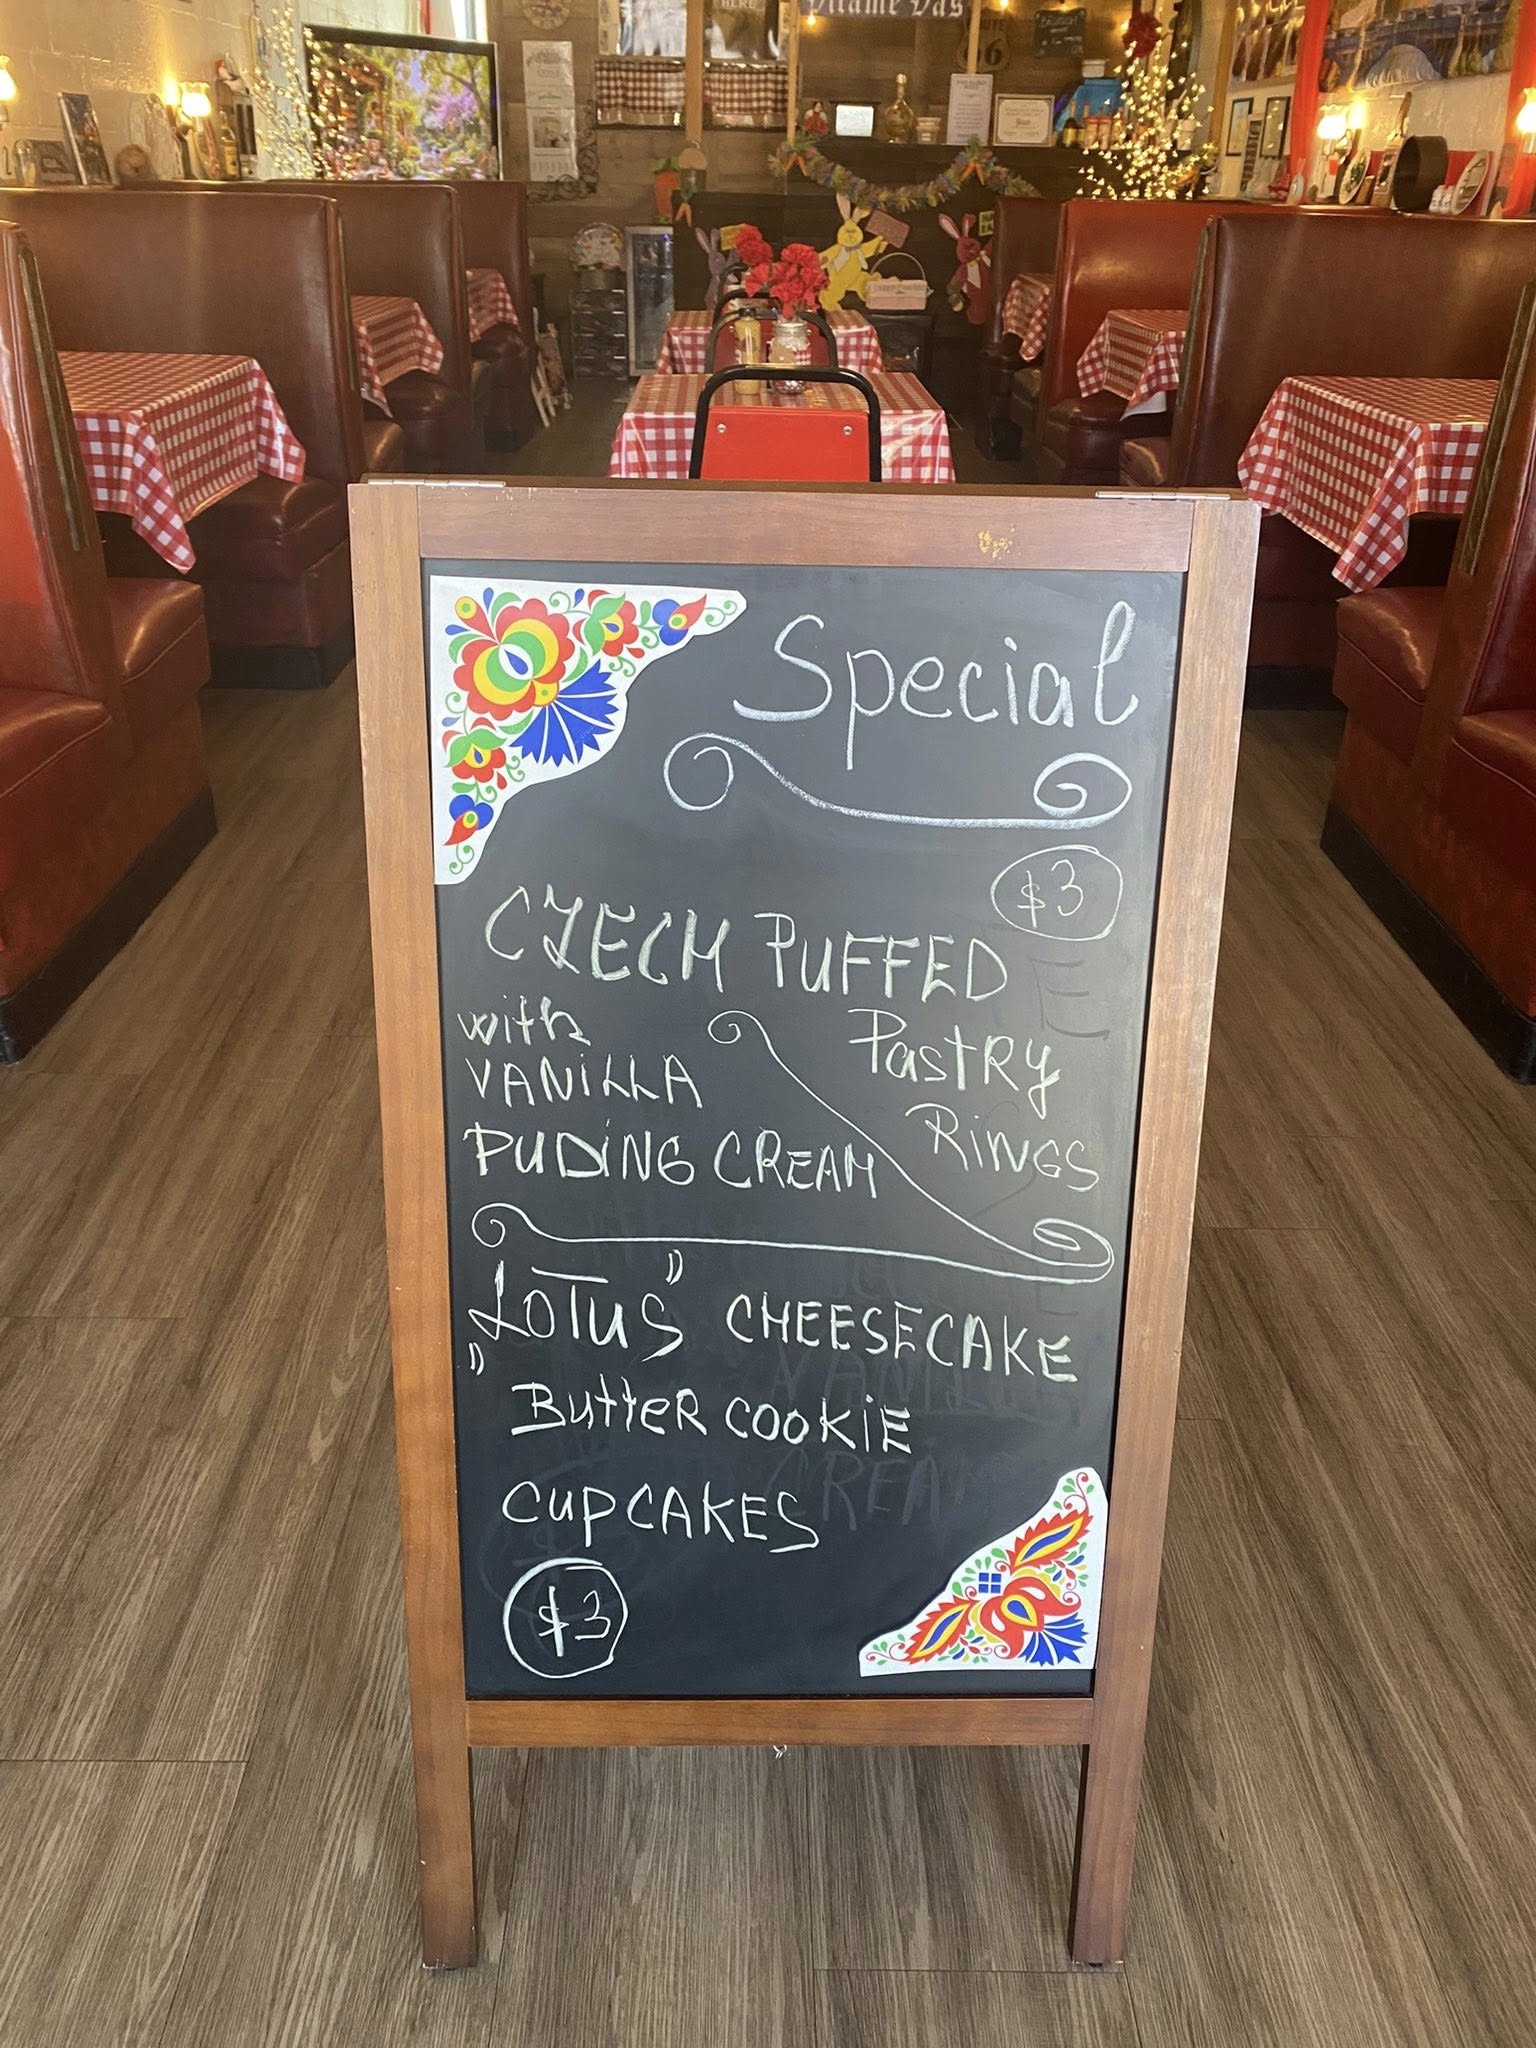 HERE
Vítáme Vás
Special
$3
CZECH PUFFED
Pastry
Rings
with
VANILLA
PUDING CREAM
„LOTUS" CHEESECAKE
Butter COOKIE
CUPCAKES
$3